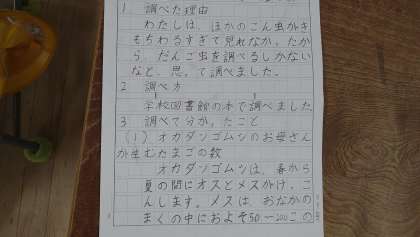 1 調べた理由
わたしは、ほかのこん虫がき
もちわるすぎて見れなか、たか
ら、だんご虫を調べるしかない
なと、思、て調べました。
2 調べ方
学校図書館の本で調べました。
3 調べて分か、たこと
(1)オカダンゴムシのお母さん
が産むたまごの数
オカダンゴムシは、春から
夏の間にオスとメスがけ、こ
んします。メスは、おなかの
まくの中におよそ50〜200この